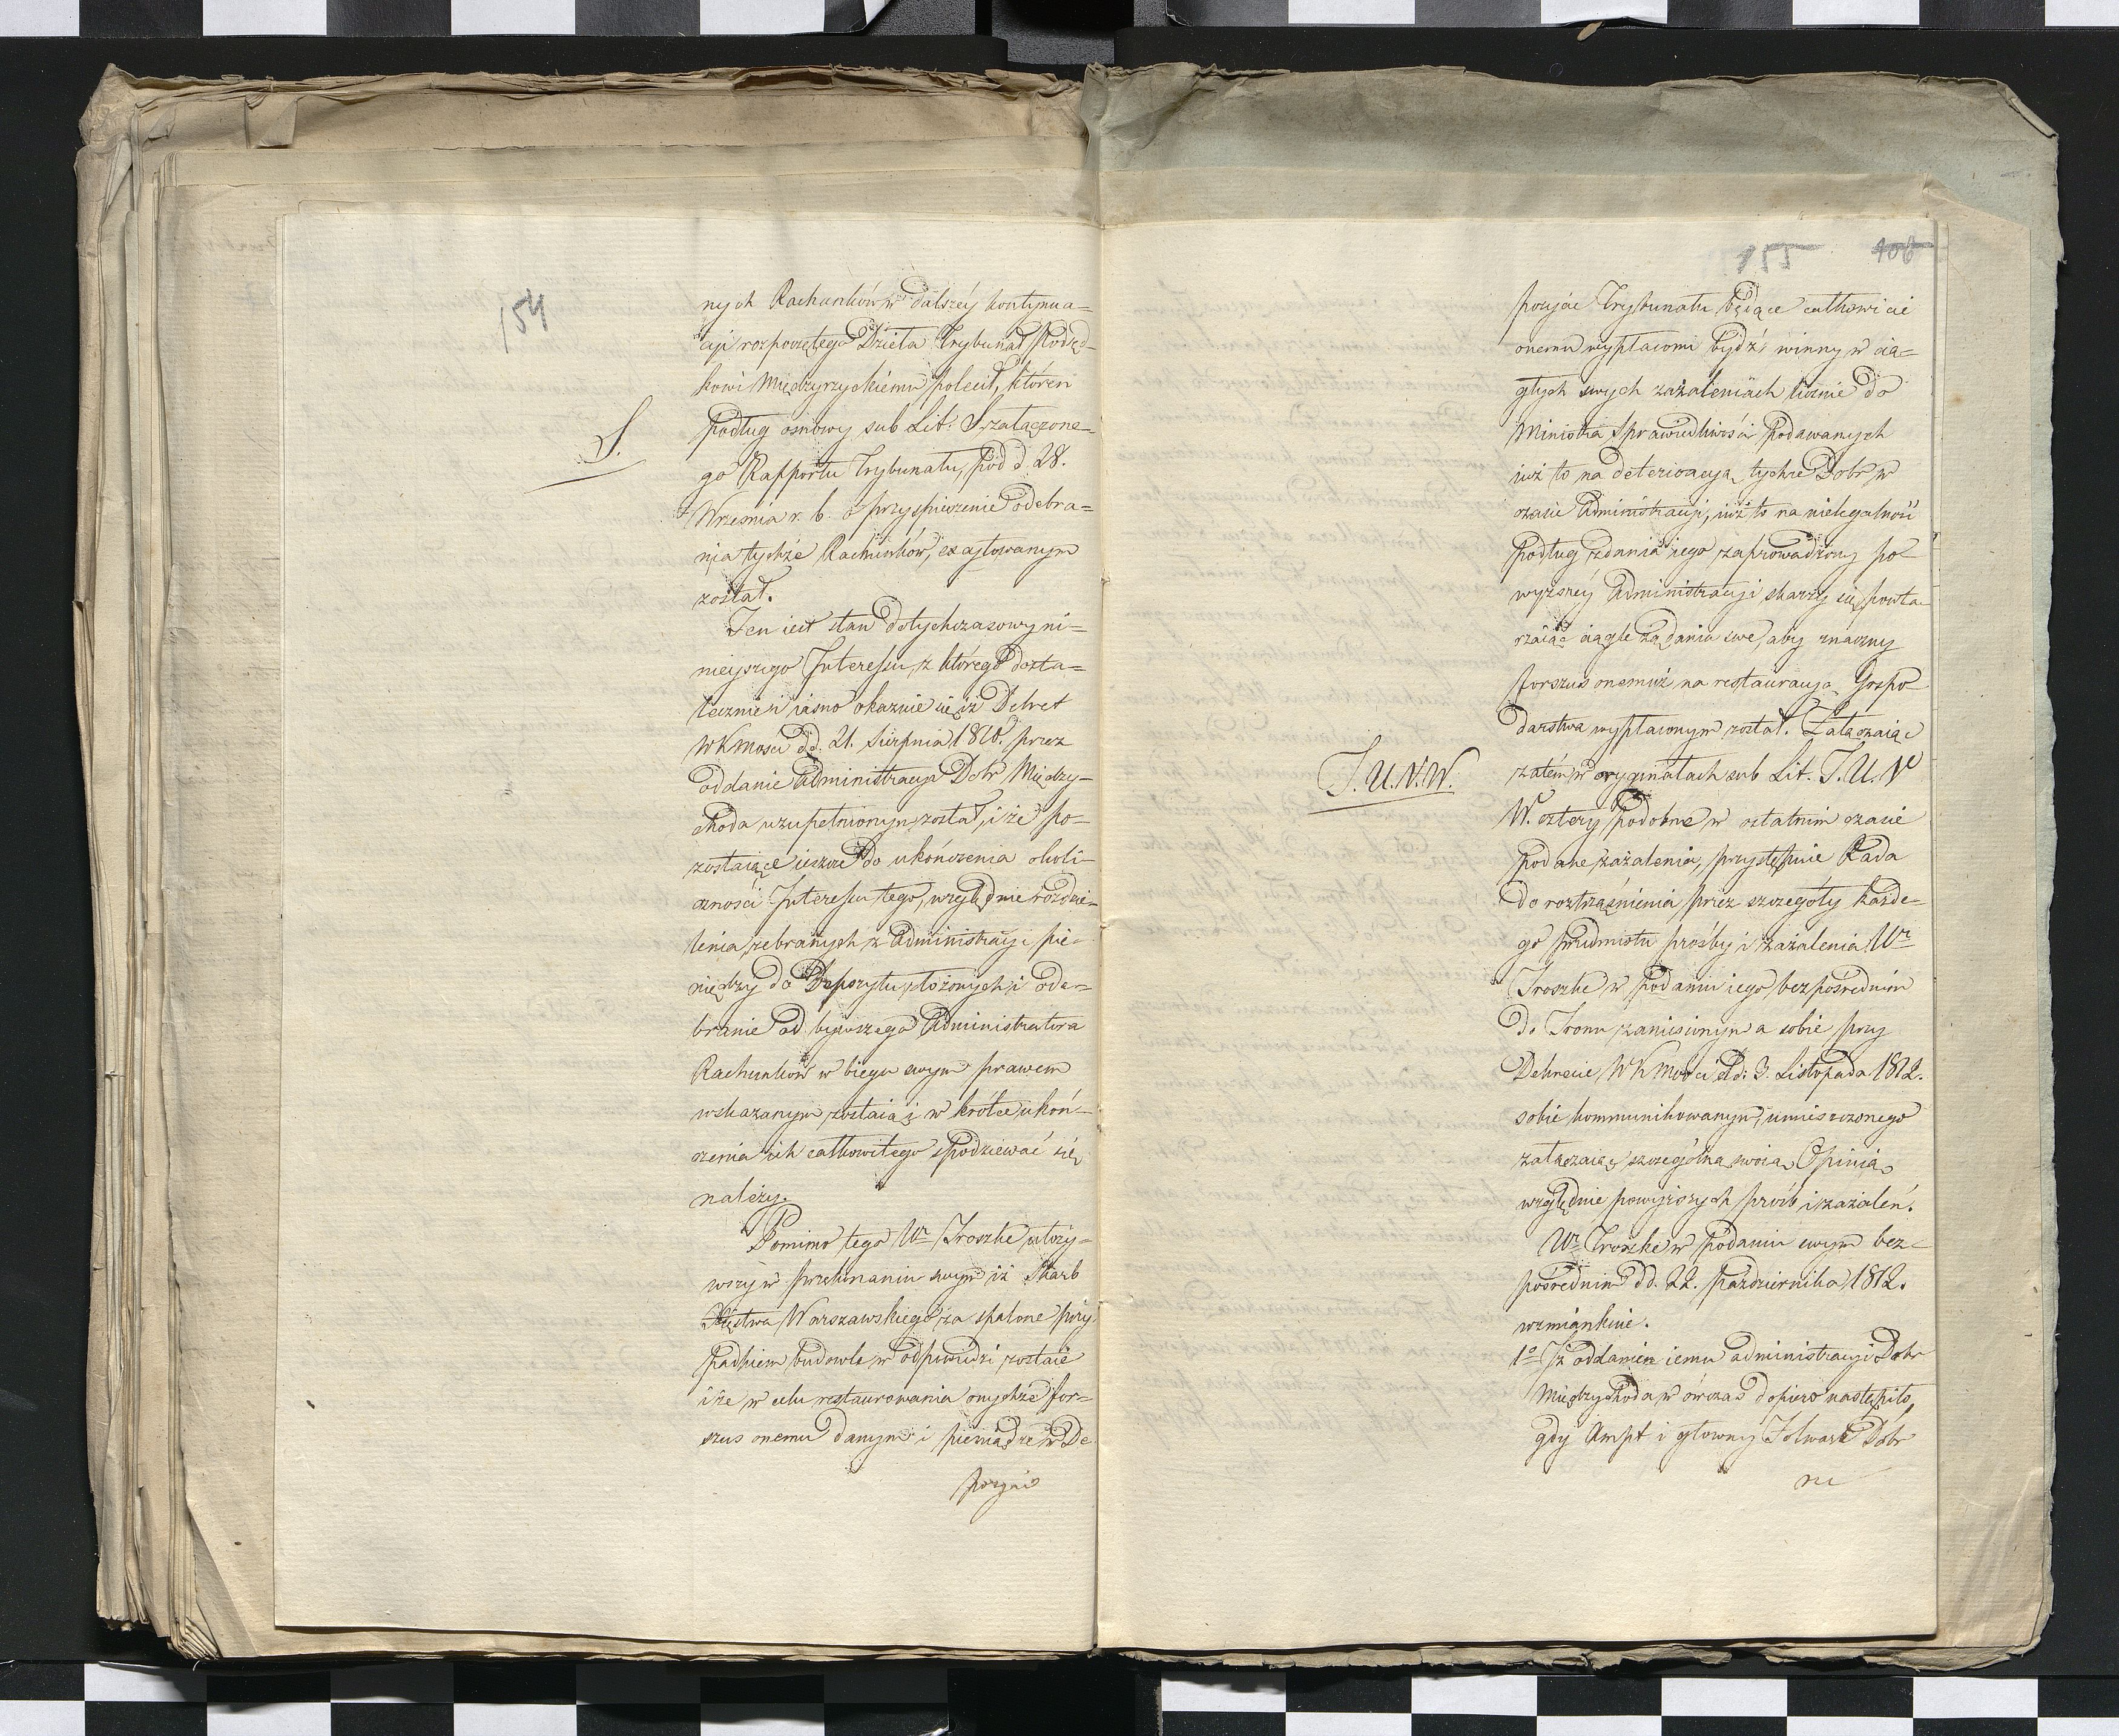 154
nych Rachunków w dalszéy kontynua=
cyi rozpoczętego Dzieła Trybunał Podsęd=
kowi Międzyrzyckiemu polecił, któren
podług osnowy sub Lit: S załączone=
S.
go Rapportu Trybunału, pod d. 28.
Wrzesnia r. b. o przyspieszenie odebra=
nia tychże Rachunków, excytowanym
został.
Ten iest stan dotychczasowy ni=
nieyszego Interessu, z którego dosta=
tecznie i iasno okazuie się iż Dekret
WKMosci dd. 21. Sierpnia 1810. przez
oddanie Administracyi Dóbr Między=
choda uzupełnionym został, i że po=
zostaiące ieszcze do ukończenia okoli=
czności Interessu tego, względnie rozdzie=
lenia zebranych z Administracyi pie=
niędzy do Depozytu złożonych i ode=
branie od bywszego Administratora
Rachunków w biegu swym prawem
wskazanym zostaią i w krótce ukoń=
czenia ich całkowitego spodziewać się
należy.
Pomimo tego Wr Troszke ułoży=
wszy w przekonaniu swym iż Skarb
Xięstwa Warszawskiego za spalone przy=
padkiem budowle w odpowiedzi zostaie
i że w celu restaurowania onychże for=
szus onemu danym i pieniądze w De
pozycie
155 406
pozycie Trybunału będące całkowicie
onemu wypłacomi bydź winny w cią=
głych swych zażaleniach licznie do
Ministra Sprawiedliwości podawanych
iuż to na deterioracyą tychże Dóbr w
czasie Administracyi, iuż to na nielegalność
podług zdania iego zaprowadzony po=
wyższéy Administracyi skarży się powta=
rzaiąc ciągle żądania swe, aby znaczny
forszus onemuż na restauracyą Gospo=
darstwa wypłaconym został. Załączaiąc
zatém w oryginałach sub Lit. T. U. V.
T. U. V. W.
W. cztery podobne w ostatnim czasie
podane zażalenia, przystępuie Rada
do roztrząśnienia przez szczegóły każde=
go przedmiotu prośby i zażalenia Wr
Troszke w podaniu iego bezpośrednim
do Tronu zaniesionym a sobie przy
Dekrecie WKMości dd. 3. Listopada 1812.
sobie kommunikowanym, umieszczonego
załączaiąc szczególną swoią Opinią
względnie powyższych prośb i zażaleń.
Wr Troszke w podaniu swym bez=
pośrednim dd. 22. Października 1812.
wzmiankuie.
1º Iż oddanie iemu administracyi Dóbr
Międzychoda w ówczas dopiero nastąpiło,
gdy Ampt i głowny Folwark Dóbr